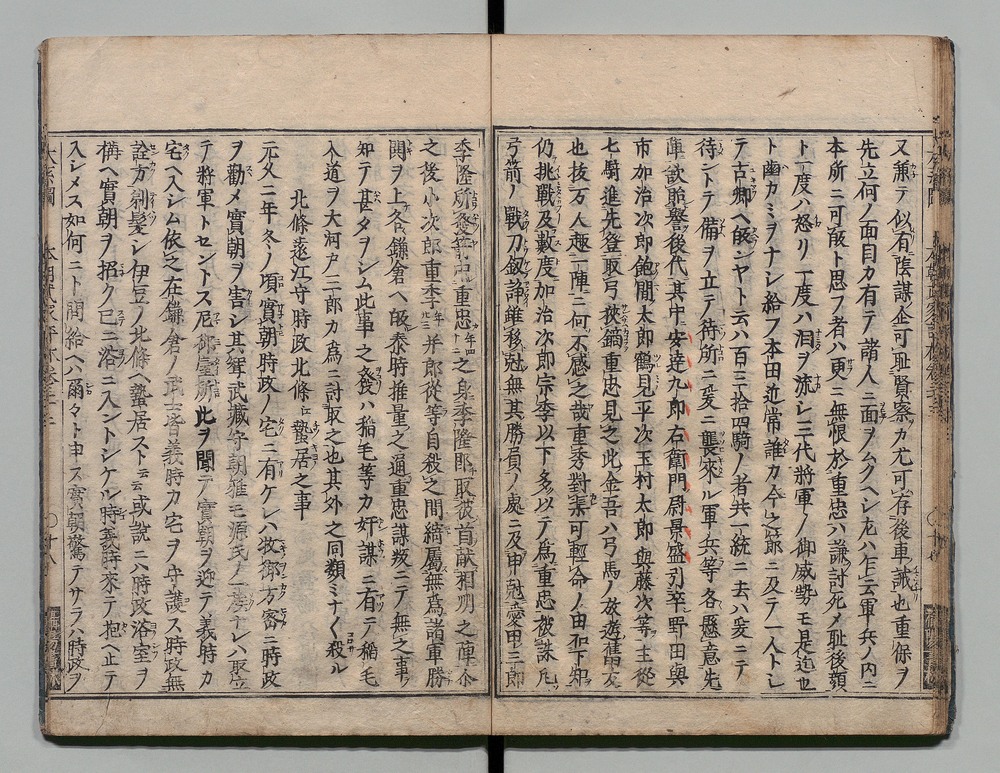 又兼テ似有陰謀企可耻賢察カ尤可存後車誡也重保ヲ
先立何ノ面目カ有テ諸人ニ面ヲムクヘシ尤ハ乍云軍兵ノ内ニ
本所ニ可皈ト思フ者ハ更ニ無恨於重忠ハ謙討死メ耻後顔
ト一度ハ怒リ一度ハ泪ヲ流レ三代將軍ノ御威勢モ是迄也
ト幽カミヲナシ給フ本田近常誰カ今之節ニ及テ一人トシ
テ古郷ヘ皈ンヤト云ハ百三拾四騎ノ者共一統ニ去ハ爰ニテ
待ントテ備ヲ立テ待所ニ爰ニ襲來ル軍兵等各懸意先
陣欲貽譽後代其中安達九郎右衛門尉景盛引卒野田與
市加治次郎飽間太郎鶴見平次玉村太郎與藤次等主從
七騎進先登取弓挾鏑重忠見之此金吾ハ弓馬ノ放遊舊友
也抜万人趣一陣ニ何不感之哉重秀對衆可輕命ノ由加下知
仍挑戰及數度加治次郎宗季以下多以テ爲重忠被誅凡
弓箭ノ戰刀劔諍雖移尅無其勝負ノ處ニ及申尅愛甲三郎
季隆所發箭中重忠年四十二之身季隆即取彼首献相州之陣尒
之後小次郎重季年廾三并郎從等自殺之間縡屬無爲諸軍勝
閧ヲ上各鎌倉ヘ皈泰時推量之通重忠謀叛ニテ無之事ヲ
知テ甚タヲシム此事之發ハ稲毛等カ奸謀ニ有テ稲毛
入道ヲ大河戸三郎カ爲ニ討取之也其外之同類ミナ〱殺ル
北條遠江守時政北條江蟄居之事
元久二年冬ノ頃實朝時政ノ宅ニ有ケレハ牧御方密ニ時政
ヲ勸メ實朝ヲ害シ其聟武藏守朝雅モ源氏ノ一族ナレハ取立
テ將軍トセントス尼御臺所此ヲ聞テ實朝ヲ迎テ義時カ
宅ヘ入シム依之在鎌倉ノ軍士皆義時カ宅ヲ守護ス時政無
詮方剃髪シ伊豆ノ北條ヘ蟄居スト云云或説ニハ時政浴室ヲ
構ヘ實朝ヲ招ク已ニ浴ニ入ントシケル時義時來テ抱ヘ止テ
入レメス如何ニト問給ヘハ爾々ト申ス實朝驚テサラハ時政ヲ